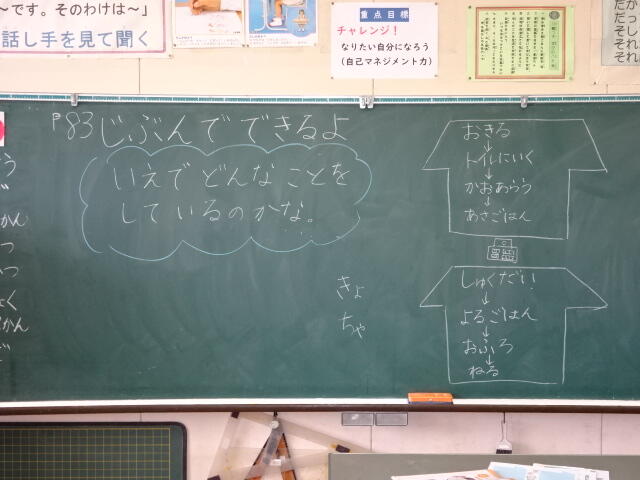 ～です。そのわけは～」
話し手を見て聞く
重点目標
チャレンジ！
なりたい自分になろう
（自己マネジメント力）
P83 じぶんでできるよ
いえでどんなことを
しているのかな。
おきる
トイレにいく
かおあらう
あさごはん
しゅくだい
よるごはん
おふろ
ねる
きょ
ちゃ